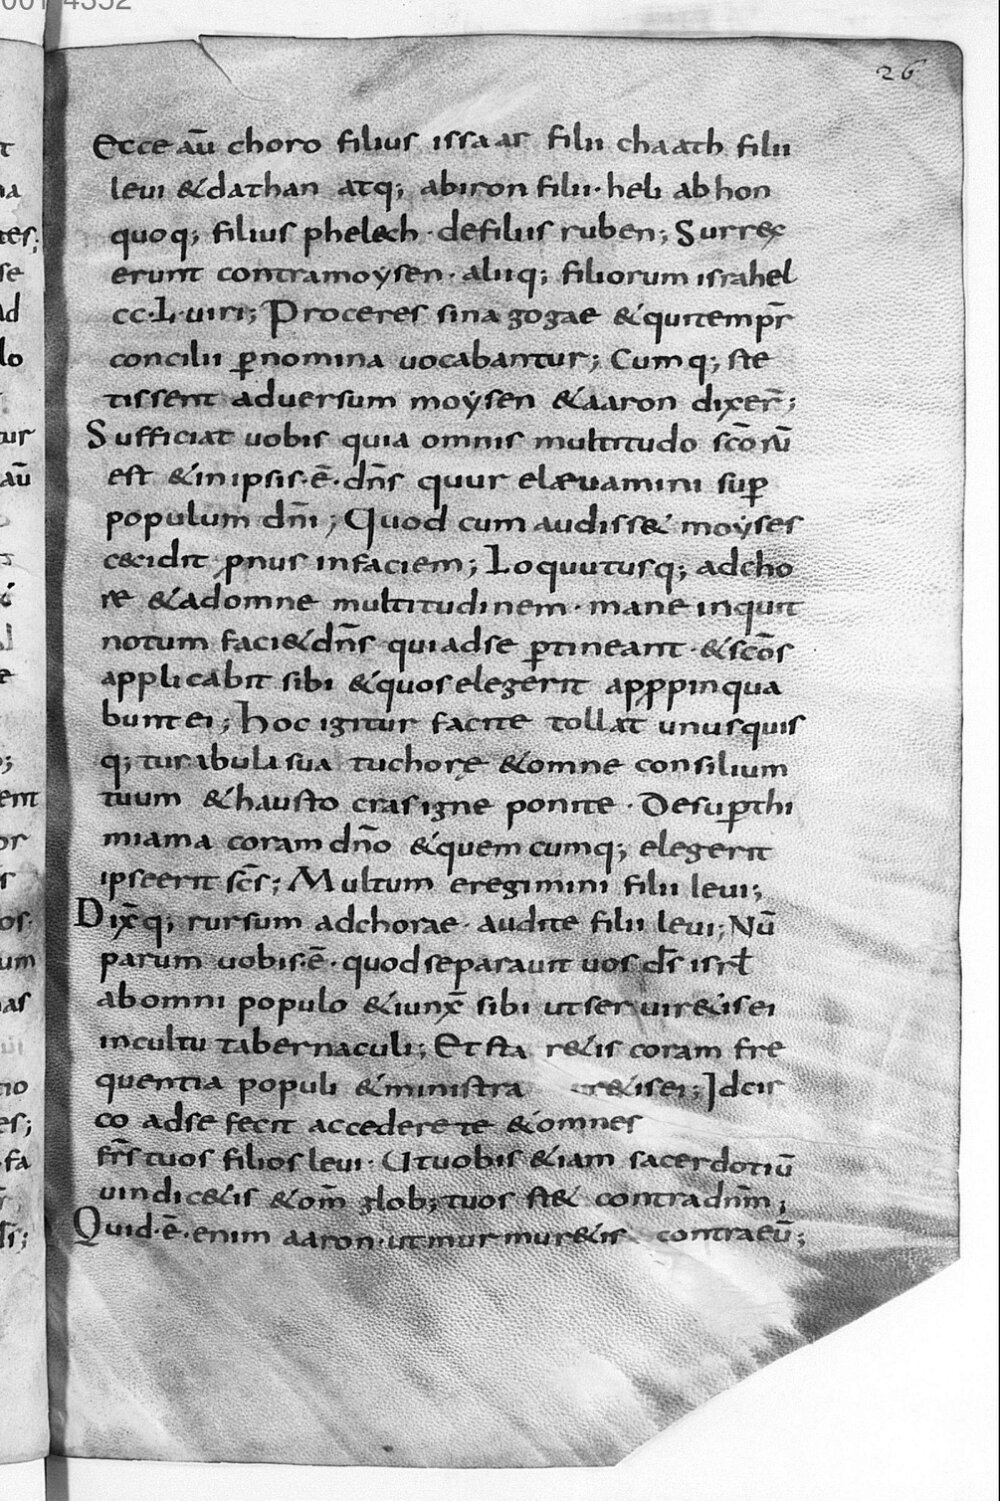 26
Ecce aū choro filius issaar filii chaath filii
leui & dathan atq; abiron filii · heli ab hon
quoq; filius pheleth · de filiis ruben; Surrex
erunt contra moẏsen · aliiq; filiorum israhel
cc·L·uiri; Proceres sinagogae & qui tempr̄
concilii ꝑ nomina uocabantur; Cumq; ste
tissent aduersum moẏsen & aaron dixer̄;
Sufficiat uobis quia omnis multitudo sc̄orū
est & in ipsis·ē·dn̄s quur elæuamini suꝑ
populum dn̄i; Quod cum audiss& moẏses
cecidit ꝓnus in faciem; Loquutusq; ad cho
re & ad omne multitudinem · mane inquit
notum faci& dn̄s qui ad se ꝑtineant · & sc̄os
applicabit sibi & quos elegerit apꝓpinqua
bunt ei; hoc igitur facite tollat unusquis
q; turabula sua tu chore & omne consilium
tuum & hausto cras igne ponite · Desuꝑ thi
miama coram dn̄o & quemcumq; elegerit
ipse erit sc̄s; Multum eregimini filii leui;
Dix̄q; rursum ad chorae · audite filii leui; Nū
parum uobis·ē·quod separauit uos ds̄ isrl̄
ab omni populo & iunx̄ sibi ut seruir&is ei
in cultu tabernaculi; Et sta r&is coram fre
quentia populi & ministra r&is ei; Idcir
co ad se fecit accedere te & omnes
fr̄s tuos filios leui · Ut uobis &iam sacerdotiū
uindic&is & om̄ glob; tuos st& contra dn̄m;
Quid·ē·enim aaron·ut murmur&is contra eū;